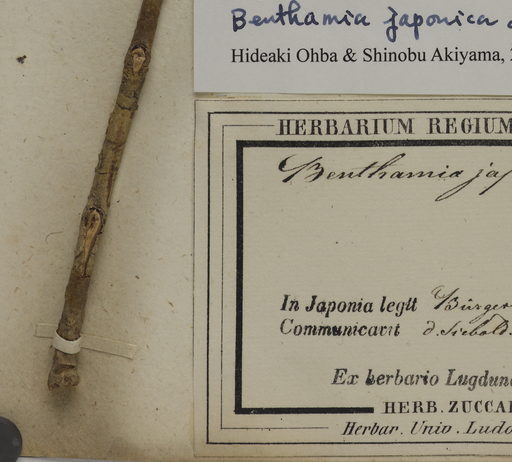 Benthamia japonica
Hideaki Ohba & Shinobu Akiyama,
HERBARIUM REGIUM
Benthamia jap
In Japonia legit Bürger
Communicavit d. Siebold.
Ex herbario Lugduno
HERB. ZUCCA
Herbar. Univ. Ludo